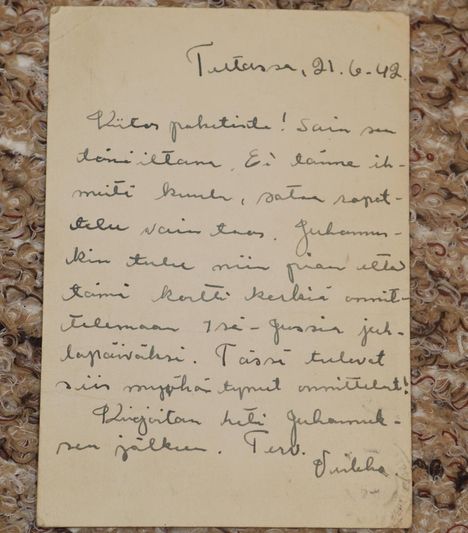 Teltassa, 21.6-42.
Kiitos paketista! Sain sen
tänä iltana. Ei tänne ih-
meitä kuulu, sataa ropot-
telee vain taas. Juhannus-
kin tulee niin pian että
tämä kortti kerkiä onnit-
telemaan Isä-Jussia juh-
lapäiväksi. Tässä tulevat
siis myöhästyneet onnittelut!
Kirjoitan heti Juhannuk-
sen jälkeen. Terv.